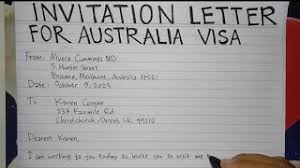 INVITATION LETTER
FOR AUSTRALIA VISA
From: Alvera Cummings MD
5 Hunter Street
Melbourne, Australia
Date: October 9, 2023
To: Karen Cooper
237 Fairmile Rd
Christchurch, Dorset, UK
Dearest Karen,
I am writing to you today to invite you to visit me